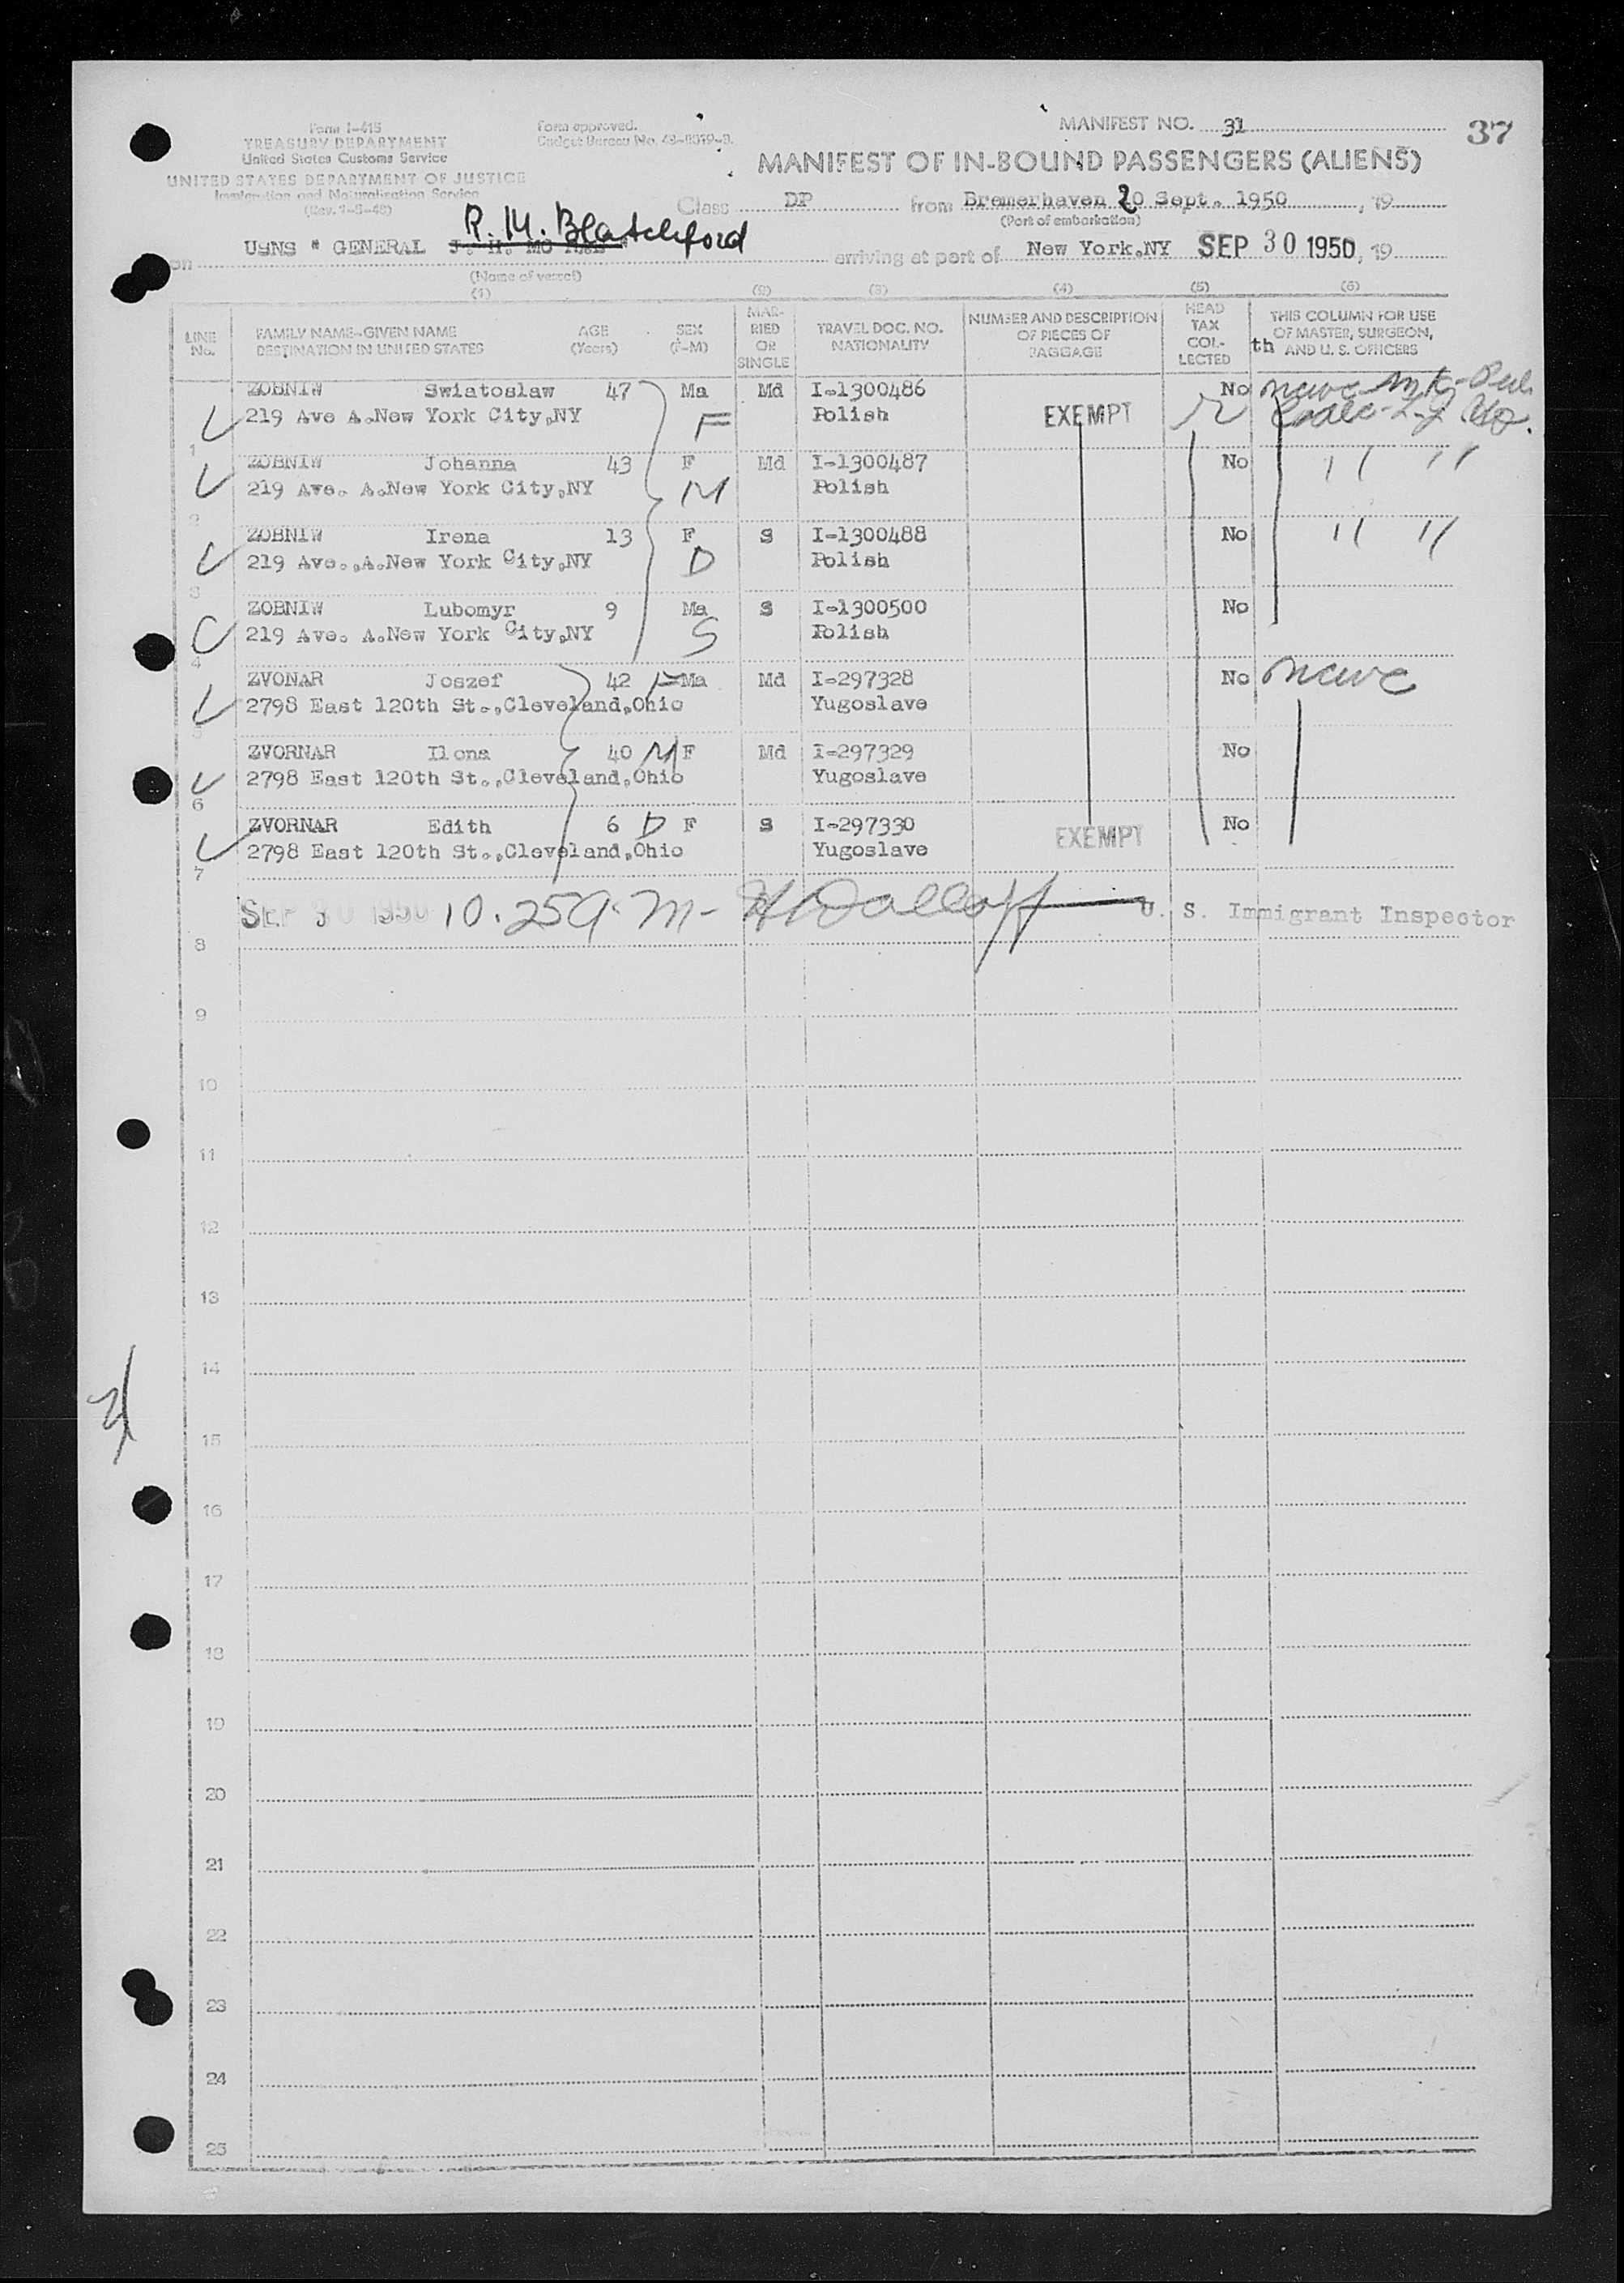 Form I-415
TREASURY DEPARTMENT
United States Customs Service
UNITED STATES DEPARTMENT OF JUSTICE
Immigration and Naturalization Service
(Rev. 1-5-48)
Form approved.
Budget Bureau No. 43-R019-3.
MANIFEST NO. 31
37
MANIFEST OF IN-BOUND PASSENGERS (ALIENS)
Class DP from Bremerhaven 20 Sept. 1950, 19
(Port of embarkation)
R. M. Blatchford
on USNS " GENERAL J. H. MC RAE arriving at port of New York,NY SEP 30 1950, 19
(Name of vessel)
(1) (2) (3) (4) (5) (6)
LINE No.
FAMILY NAME-GIVEN NAME
DESTINATION IN UNITED STATES
AGE
(Years)
SEX
(F-M)
MAR-
RIED
OR
SINGLE
TRAVEL DOC. NO.
NATIONALITY
NUMBER AND DESCRIPTION
OF PIECES OF
BAGGAGE
HEAD
TAX
COL-
LECTED
THIS COLUMN FOR USE
OF MASTER, SURGEON,
th AND U. S. OFFICERS
ZOBNIW Swiatoslaw 47 Ma Md I-1300486 No
219 Ave A.New York City,NY F Polish EXEMPT
1
ZOBNIW Johanna 43 F Md I-1300487 No " "
219 Ave. A.New York City,NY M Polish
2
ZOBNIW Irena 13 F S I-1300488 No " "
219 Ave.,A.New York City,NY D Polish
3
ZOBNIW Lubomyr 9 Ma S I-1300500 No
219 Ave. A.New York City,NY S Polish
4
ZVONAR Joszef 42 F Ma Md I-297328 No
2798 East 120th St.,Cleveland,Ohio Yugoslave
5
ZVORNAR Ilona 40 M F Md I-297329 No
2798 East 120th St.,Cleveland,Ohio Yugoslave
6
ZVORNAR Edith 6 D F S I-297330 EXEMPT No
2798 East 120th St.,Cleveland,Ohio Yugoslave
7
SEP 30 1950 10.25 a.m- U. S. Immigrant Inspector
8
9
10
11
12
13
14
15
16
17
18
19
20
21
22
23
24
25